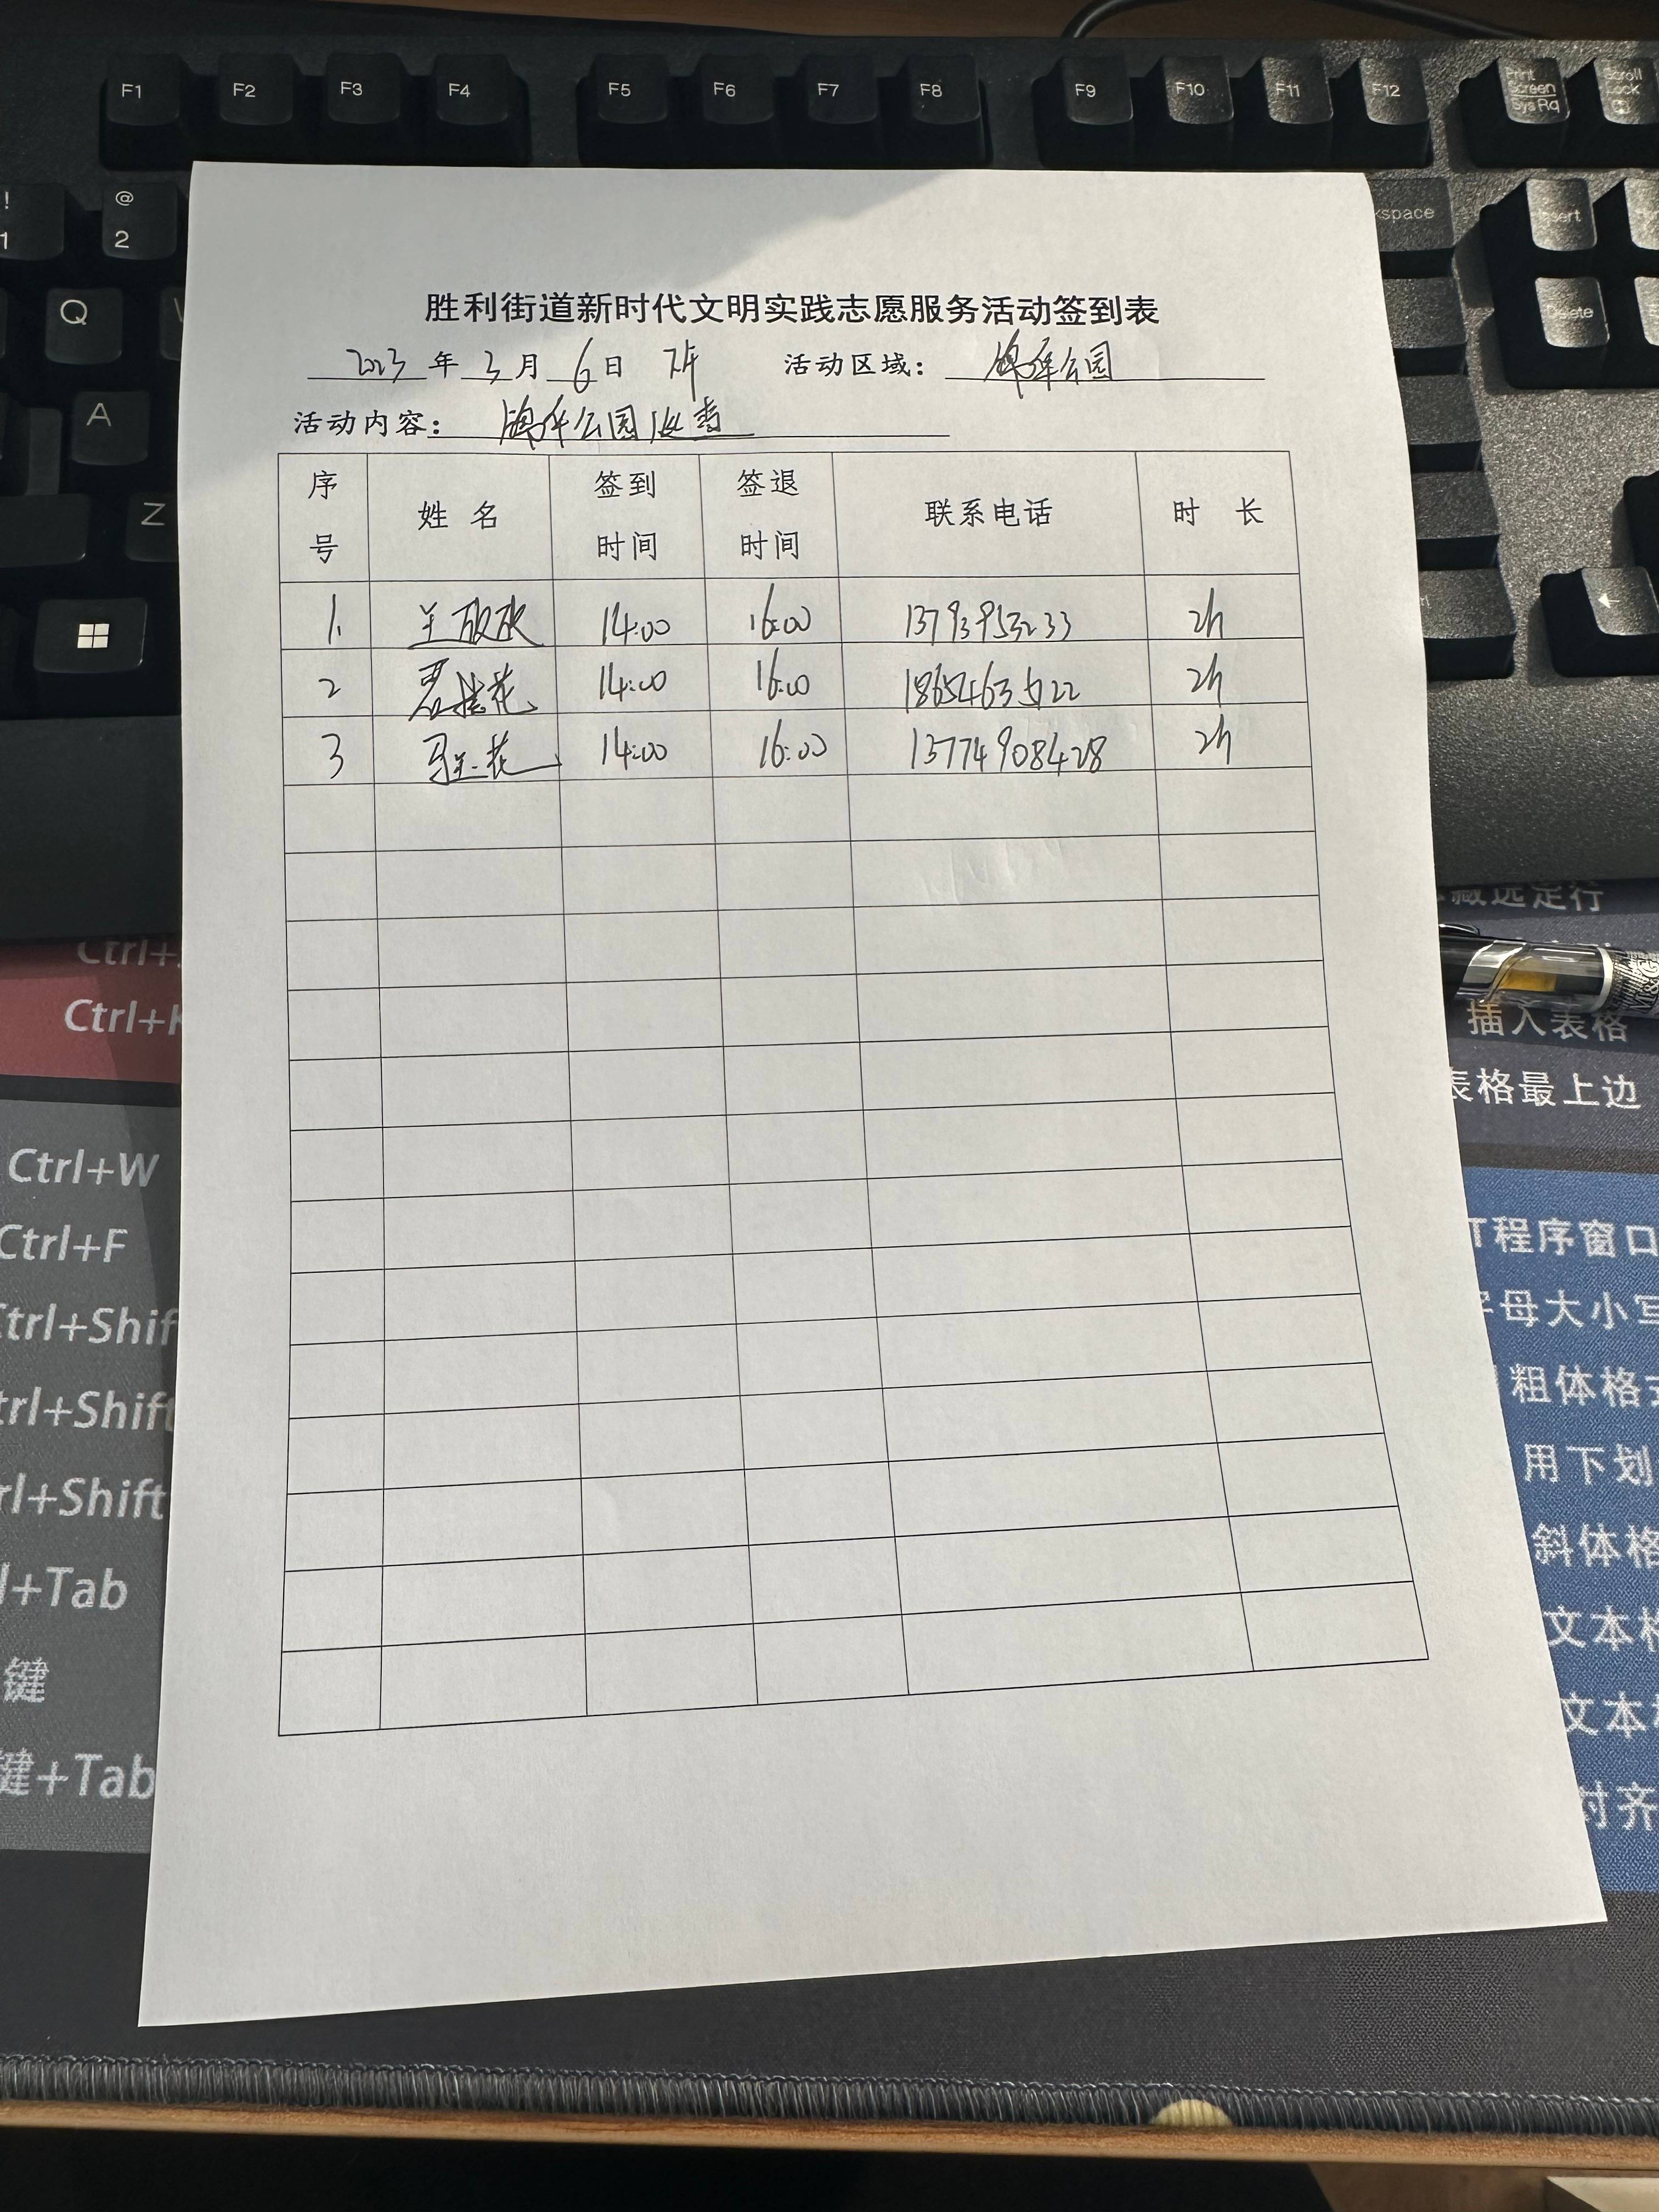 F1 F2 F3 F4 F5 F6 F7 F8 F9 F10 F11 F12 Print Screen SysRq Scroll Lock
! 1 @ 2 Insert
Q Delete
A
Z
胜利街道新时代文明实践志愿服务活动签到表
2023年3月6日 下午 活动区域: 公园
活动内容: 公园巡查
序号 姓名 签到时间 签退时间 联系电话 时长
1. 14:00 16:00 13793953233 2h
2 14:00 16:00 18654635122 2h
3 花 14:00 16:00 13774908428 2h
Ctrl+W
Ctrl+F
Ctrl+Shif
trl+Shift
rl+Shift
l+Tab
键
键+Tab
藏选定行
M&G
插入表格
表格最上边
T程序窗口
字母大小写
粗体格式
用下划
斜体格
文本格
文本
对齐